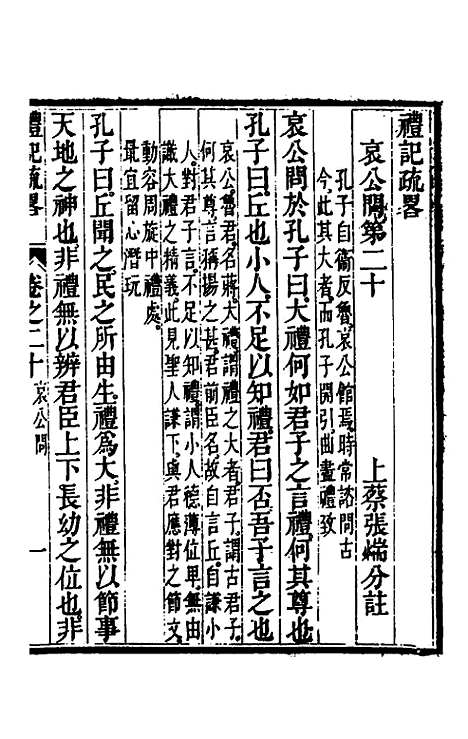 禮記疏畧
哀公問第二十　上蔡張㟨分註
孔子自衞反魯。哀公館焉。時常諮問古
今。此其大者。而孔子開引。曲盡禮致
哀公問於孔子曰。大禮何如。君子之言禮。何其尊也
孔子曰。丘也小人。不足以知禮。君曰否。吾子言之也
哀公。魯君。名蔣。大禮。謂禮之大者。君子。謂古君子。
何其尊。言稱揚之甚。君前臣名。故自言丘。自謙小
人。對君子言。不足以知禮。謂小人德薄位卑。無由
識大禮之精義。此見聖人謙下。與君應對之節文。
動容周旋中禮處。
最宜留心潛玩
孔子曰。丘聞之。民之所由生。禮爲大。非禮無以節事
天地之神也。非禮無以辨君臣上下長幼之位也。非
禮記疏畧　卷之二十　哀公問　一